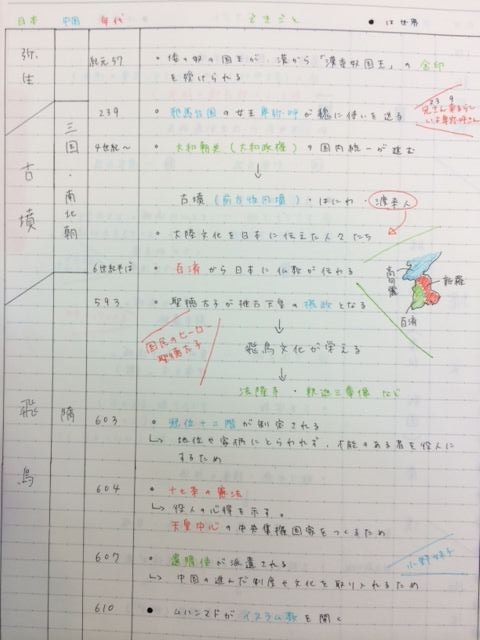 日本 中国 年代 できごと ● は世界
弥生
紀元57 ・倭の奴の国王が、漢から「漢委奴国王」の金印
を授けられる
239 ・邪馬台国の女王卑弥呼が魏に使いを送る
23 9
兄さん来るらし
いよ卑弥呼さん
三国・南北朝
4世紀〜 ・大和朝廷(大和政権)の国内統一が進む
↓
古墳
古墳(前方後円墳)・はにわ・渡来人
・大陸文化を日本に伝えた人々たち
6世紀半ば ・百済から日本に仏教が伝わる
高句麗
新羅
百済
593 ・聖徳太子が推古天皇の摂政となる
国民のヒーロー
聖徳太子
↓
飛鳥文化が栄える
↓
法隆寺・釈迦三尊像 など
飛鳥
隋
603 ・冠位十二階が制定される
↳ 地位や家柄にとらわれず、才能のある者を役人に
するため
604 ・十七条の憲法
↳ 役人の心得を示す。
天皇中心の中央集権国家をつくるため
607 ・遣隋使が派遣される
小野妹子
↳ 中国の進んだ制度や文化を取り入れるため
610 ● ムハンマドがイスラム教を開く